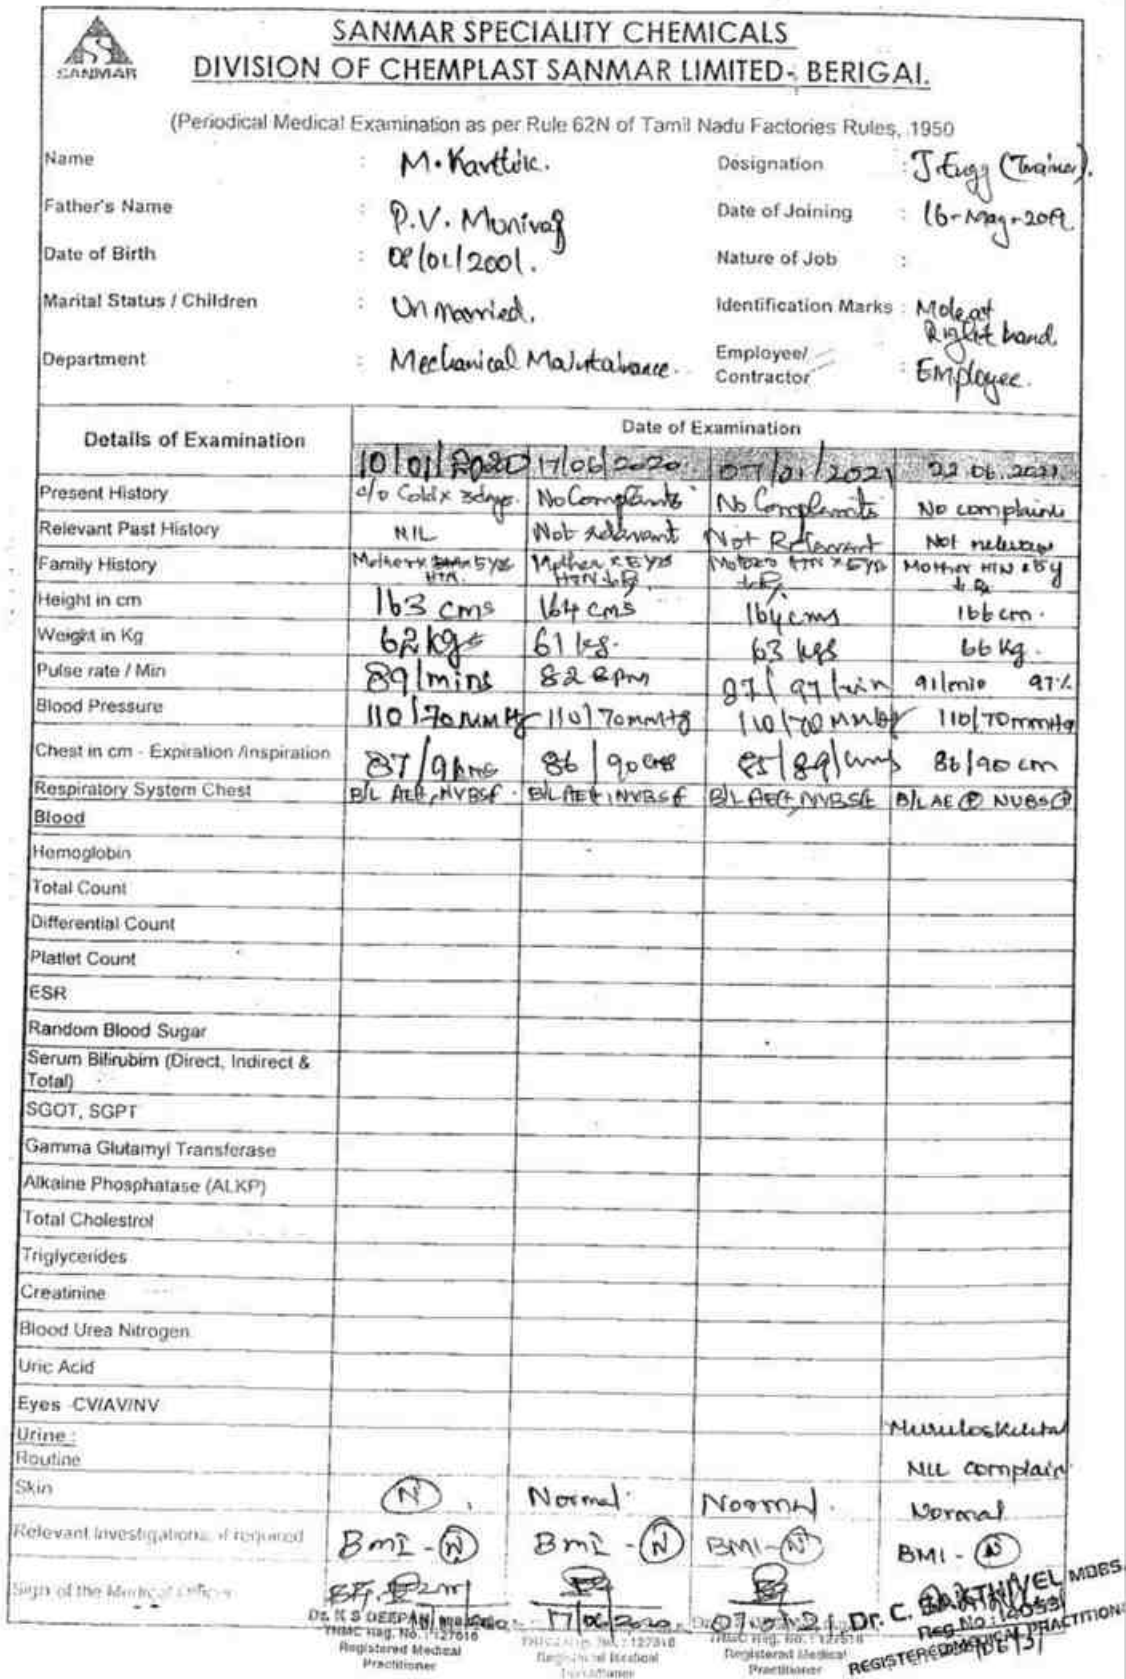 SANMAR
SANMAR SPECIALITY CHEMICALS
DIVISION OF CHEMPLAST SANMAR LIMITED- BERIGAI.
(Periodical Medical Examination as per Rule 62N of Tamil Nadu Factories Rules, 1950
Name : M. Karthik. Designation : J.Engg (Trainee).
Father's Name : P.V. Muniraj Date of Joining : 16-May-2019.
Date of Birth : 08/01/2001. Nature of Job :
Marital Status / Children : Un married. Identification Marks : Mole at Right hand
Department : Mechanical Maintanance. Employee/ Contractor : Employee.
Details of Examination Date of Examination
10/01/2020 17/06/2020 07/01/2021 22.06.2021
Present History c/o Cold x 3days. No Complaints No Complaints No complaints
Relevant Past History NIL Not relavant Not Relevant Not relevant
Family History Mother x 5 yrs HTN. Mother x 5 yrs HTN Mother HTN x 5 yrs Mother HTN x 5 y
Height in cm 163 cms 164 cms 164 cms 166 cm.
Weight in Kg 62 kgs 61 kgs. 63 kgs 66 kg.
Pulse rate / Min 89/mins 82 Bpm 87 / 97 / min 91/min 97%
Blood Pressure 110/70 mmHg 110/70mmHg 110/70 mmHg 110/70mmHg
Chest in cm - Expiration /Inspiration 87/ 86/90 cms 85/89/cms 86/90 cm
Respiratory System Chest B/L AE+, NVBS+ B/L AE+, NVBS+ B/L AE+, NVBS+ B/L AE + NVBS +
Blood
Hemoglobin
Total Count
Differential Count
Platlet Count
ESR
Random Blood Sugar
Serum Bilirubim (Direct, Indirect &
Total)
SGOT, SGPT
Gamma Glutamyl Transferase
Alkaine Phosphatase (ALKP)
Total Cholestrol
Triglycerides
Creatinine
Blood Urea Nitrogen
Uric Acid
Eyes -CV/AV/NV
Urine : Musculoskeletal
Routine NIL complain
Skin N Normal Normal. Normal
Relevant Investigations, if required BMI - N BMI - N BMI - N BMI - N
Sign of the Medical Officer
17/06/2020 07/01/21
Dr. K S DEEPAN
TNMC Reg. No. : 127616
Registered Medical
Practitioner
TNMC Reg. No. : 127616
Registered Medical
Practitioner
TNMC Reg. No. : 127616
Registered Medical
Practitioner
Dr. C. SAKTHIVEL MBBS.
Reg No :
REGISTERED MEDICAL PRACTITION